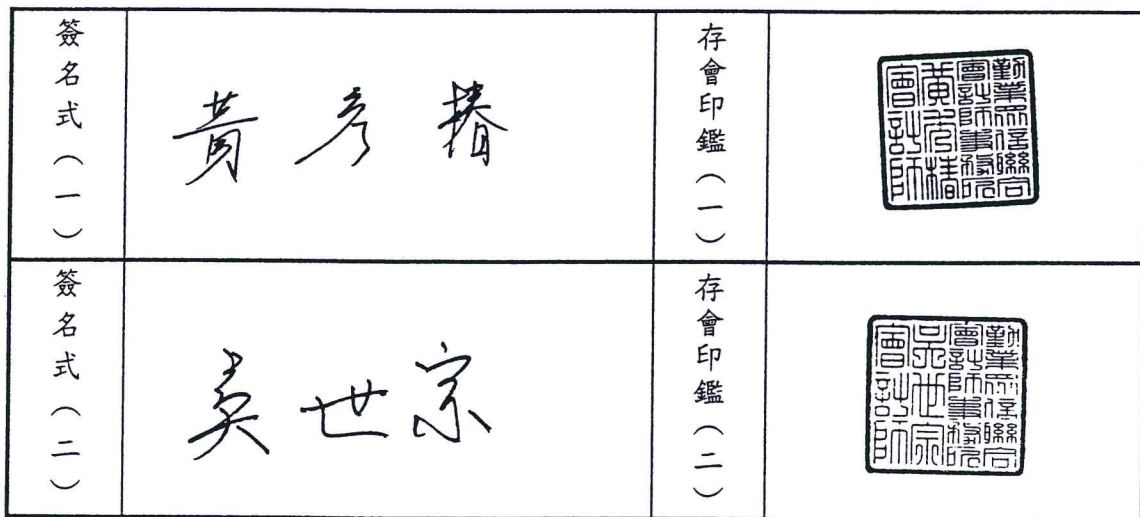 簽名式（一）
黃彥椿
存會印鑑（一）
勤業眾信聯合
會計師事務所
黃彥椿
會計師
簽名式（二）
吳世宗
存會印鑑（二）
勤業眾信聯合
會計師事務所
吳世宗
會計師